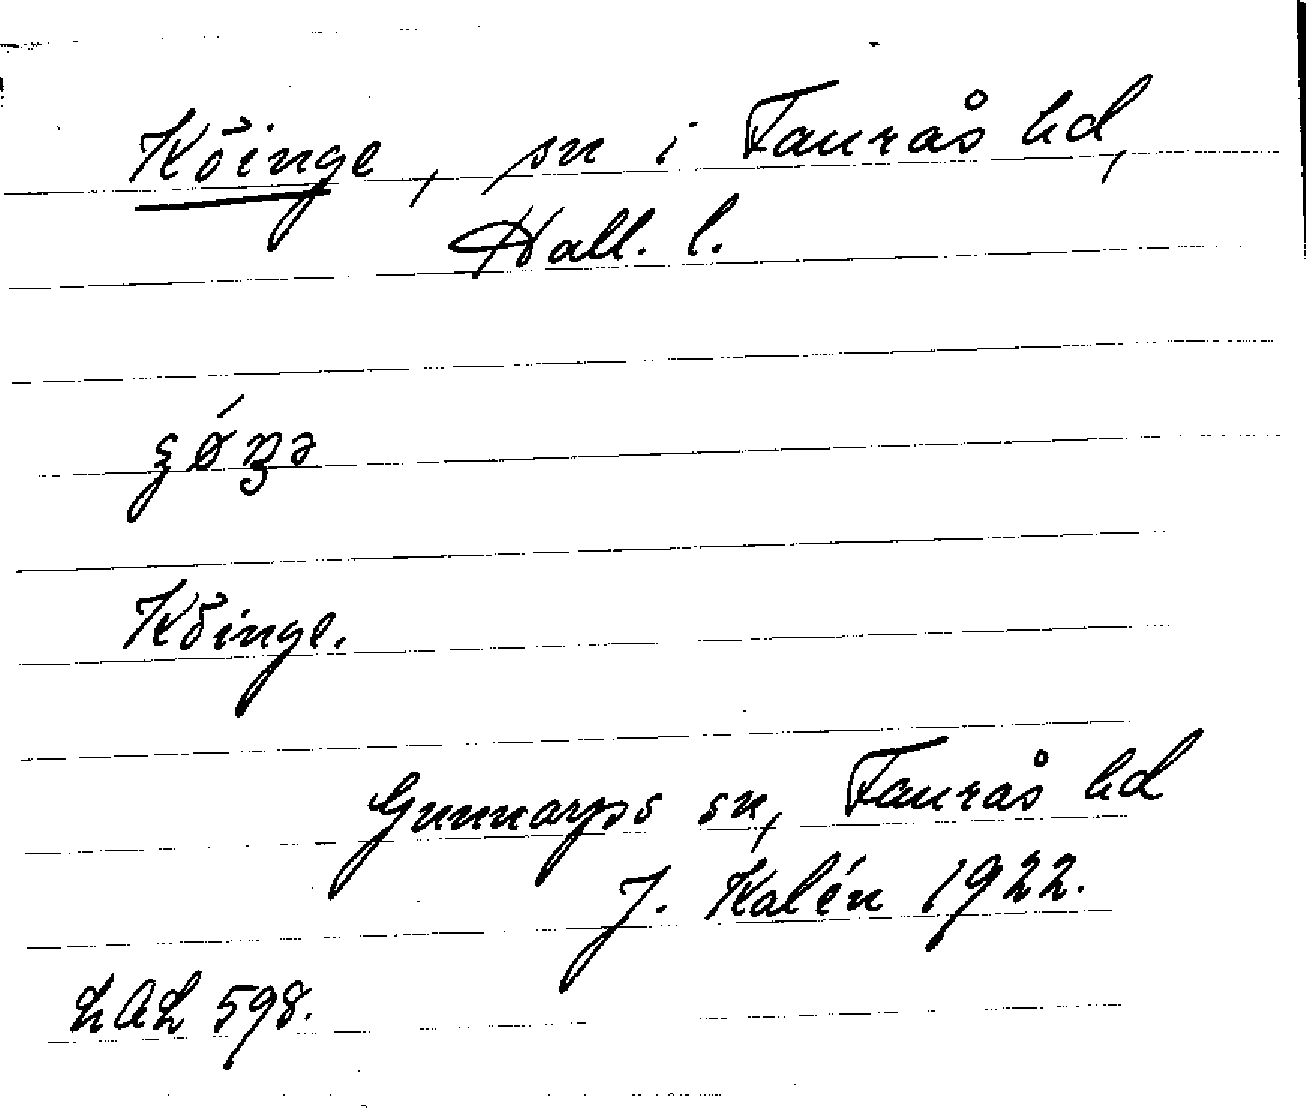 Köinge, sn i Faurås hd,
Hall. l.
Köinge.
Gunnarps sn, Faurås hd
J. Kalén 1922.
LAL 598.